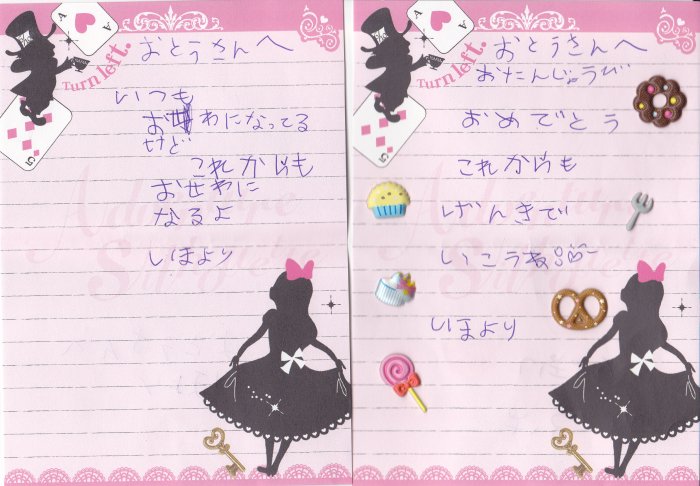 Turn left.
おとうさんへ
いつも
おせわになってる
けど
これからも
おせわに
なるよ
しほより
Turn left.
おとうさんへ
おたんじょうび
おめでとう
これからも
げんきで
いこうね
しほより